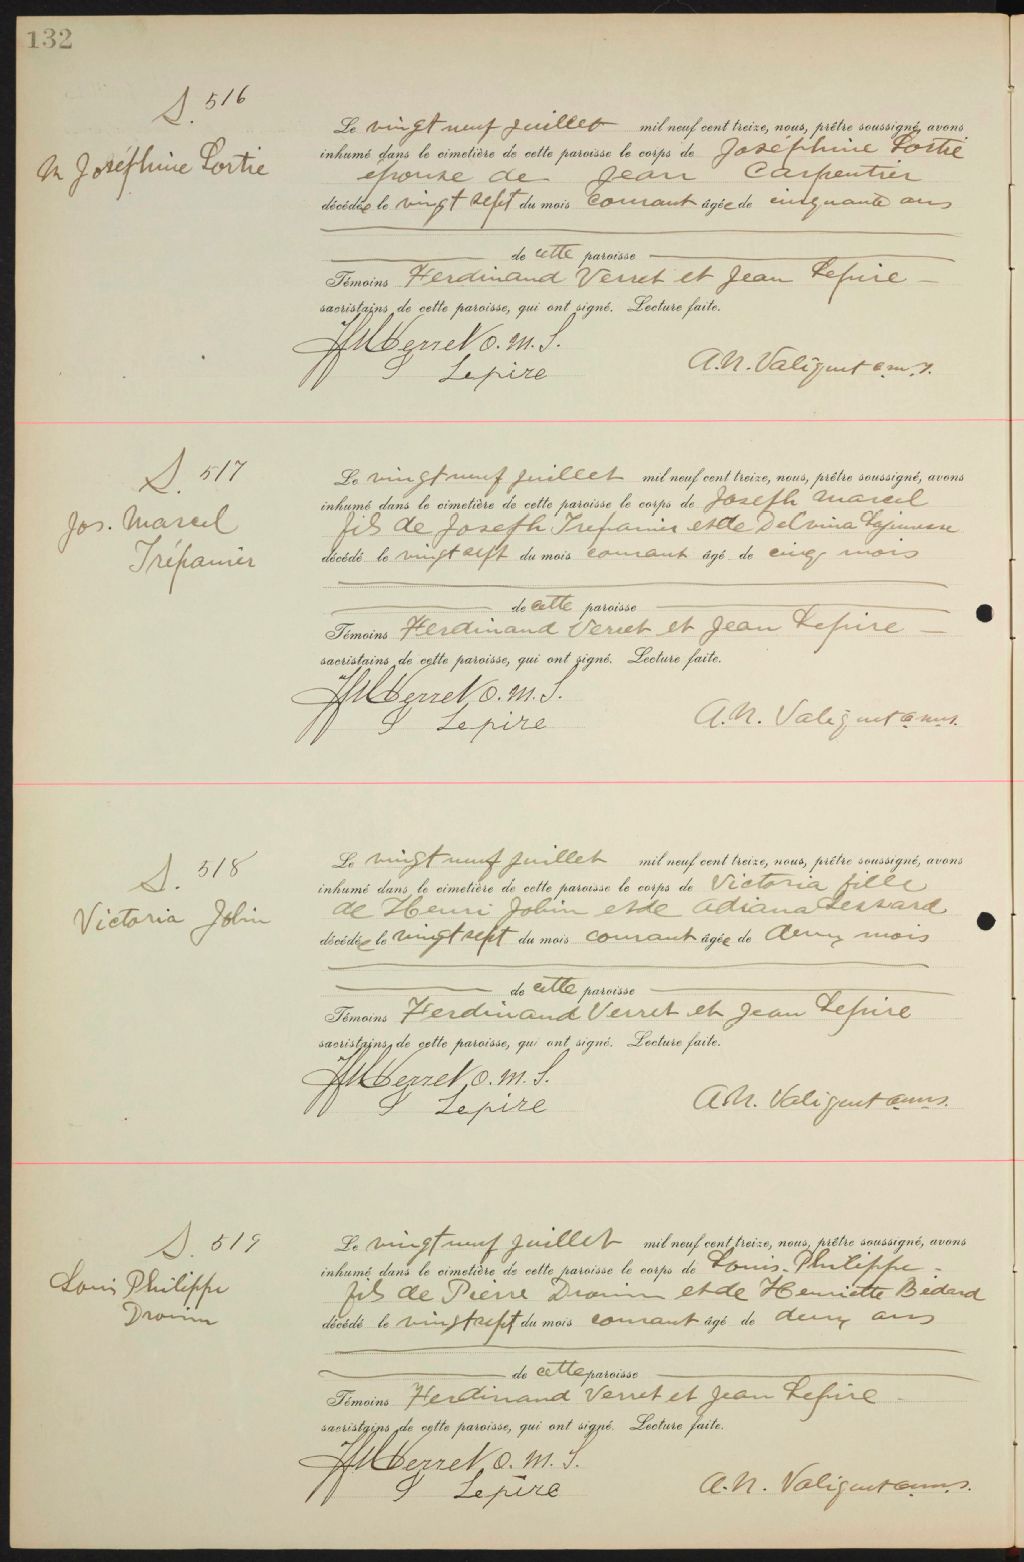 132
S. 516
M Joséphine Lortie
Le vingt neuf juillet mil neuf cent treize, nous, prêtre soussigné, avons
inhumé dans le cimetière de cette paroisse le corps de Joséphine Lortie
épouse de Jean Carpentier
décédée le vingt sept du mois courant âgée de cinquante ans
de cette paroisse
Témoins Ferdinand Verret et Jean Lepire
sacristains de cette paroisse, qui ont signé. Lecture faite.
Verret O. M. I.
Lepire
A. N. Valiquet o.m.i.
S. 517
Jos. Marcel
Trépanier
Le vingt neuf juillet mil neuf cent treize, nous, prêtre soussigné, avons
inhumé dans le cimetière de cette paroisse le corps de Joseph Marcel
fils de Joseph Trépanier et de Delvina Lajeunesse
décédé le vingt sept du mois courant âgé de cinq mois
de cette paroisse
Témoins Ferdinand Verret et Jean Lepire
sacristains de cette paroisse, qui ont signé. Lecture faite.
Verret O. M. I.
Lepire
A. N. Valiquet o.m.i.
S. 518
Victoria Jobin
Le vingt neuf juillet mil neuf cent treize, nous, prêtre soussigné, avons
inhumé dans le cimetière de cette paroisse le corps de Victoria fille
de Henri Jobin et de Adriana Lessard
décédée le vingt sept du mois courant âgée de deux mois
de cette paroisse
Témoins Ferdinand Verret et Jean Lepire
sacristains de cette paroisse, qui ont signé. Lecture faite.
Verret O. M. I.
Lepire
A. N. Valiquet o.m.i.
S. 519
Louis Philippe
Drouin
Le vingt neuf juillet mil neuf cent treize, nous, prêtre soussigné, avons
inhumé dans le cimetière de cette paroisse le corps de Louis-Philippe
fils de Pierre Drouin et de Henriette Bédard
décédé le vingt sept du mois courant âgé de deux ans
de cette paroisse
Témoins Ferdinand Verret et Jean Lepire
sacristains de cette paroisse, qui ont signé. Lecture faite.
Verret O. M. I.
Lepire
A. N. Valiquet o.m.i.